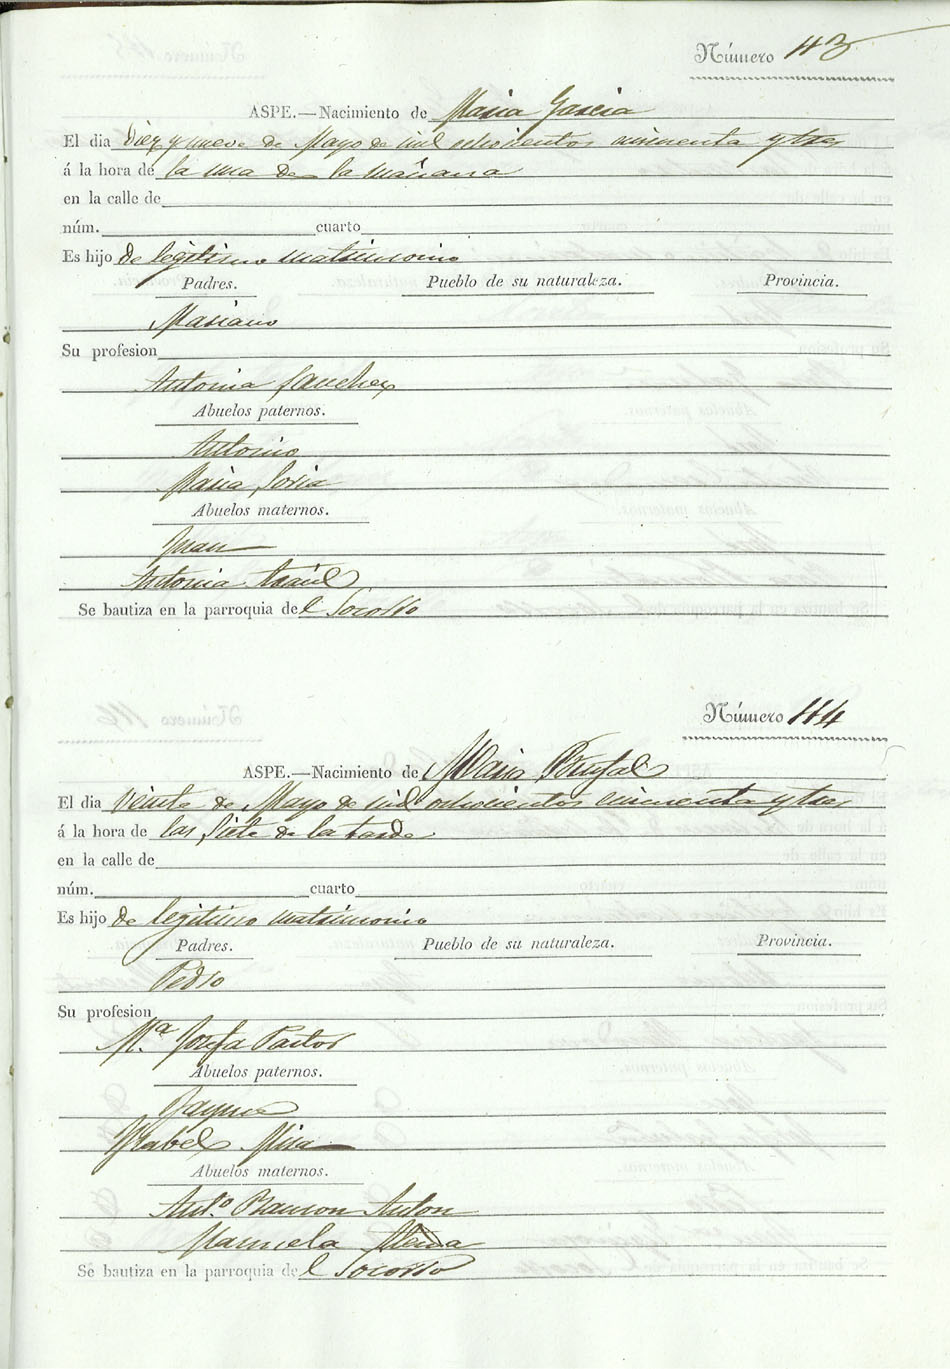 Número 113
ASPE.—Nacimiento de Maria Garcia
El dia Diez y nueve de Mayo de mil ochocientos cincuenta y tres
á la hora de la una de la mañana
en la calle de
núm. cuarto
Es hijo de legitimo matrimonio
Padres. Pueblo de su naturaleza. Provincia.
Mariano
Su profesion
Antonia Sanchez
Abuelos paternos.
Antonio
Maria Soria
Abuelos maternos.
Juan
Antonia
Se bautiza en la parroquia del Socorro
Número 114
ASPE.—Nacimiento de Maria Brufal
El dia Veinte de Mayo de mil ochocientos cincuenta y tres
á la hora de las siete de la tarde
en la calle de
núm. cuarto
Es hijo de legitimo matrimonio
Padres. Pueblo de su naturaleza. Provincia.
Pedro
Su profesion
Mª. Josefa Pastor
Abuelos paternos.
Jayme
Ysabel Mira
Abuelos maternos.
Antº. Ramon Anton
Manuela
Se bautiza en la parroquia del Socorro